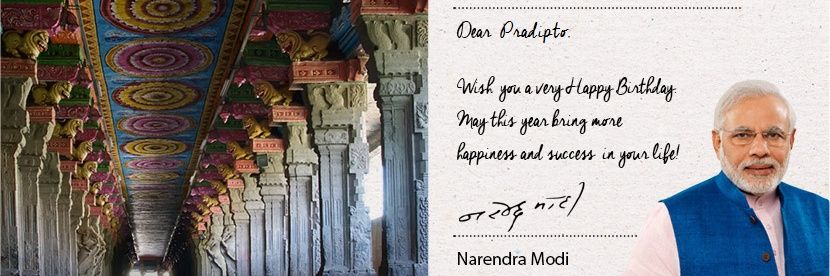 Dear Pradipto.
Wish you a very Happy Birthday.
May this year bring more
happiness and success in your life!
नरेन्द्र मोदी
Narendra Modi